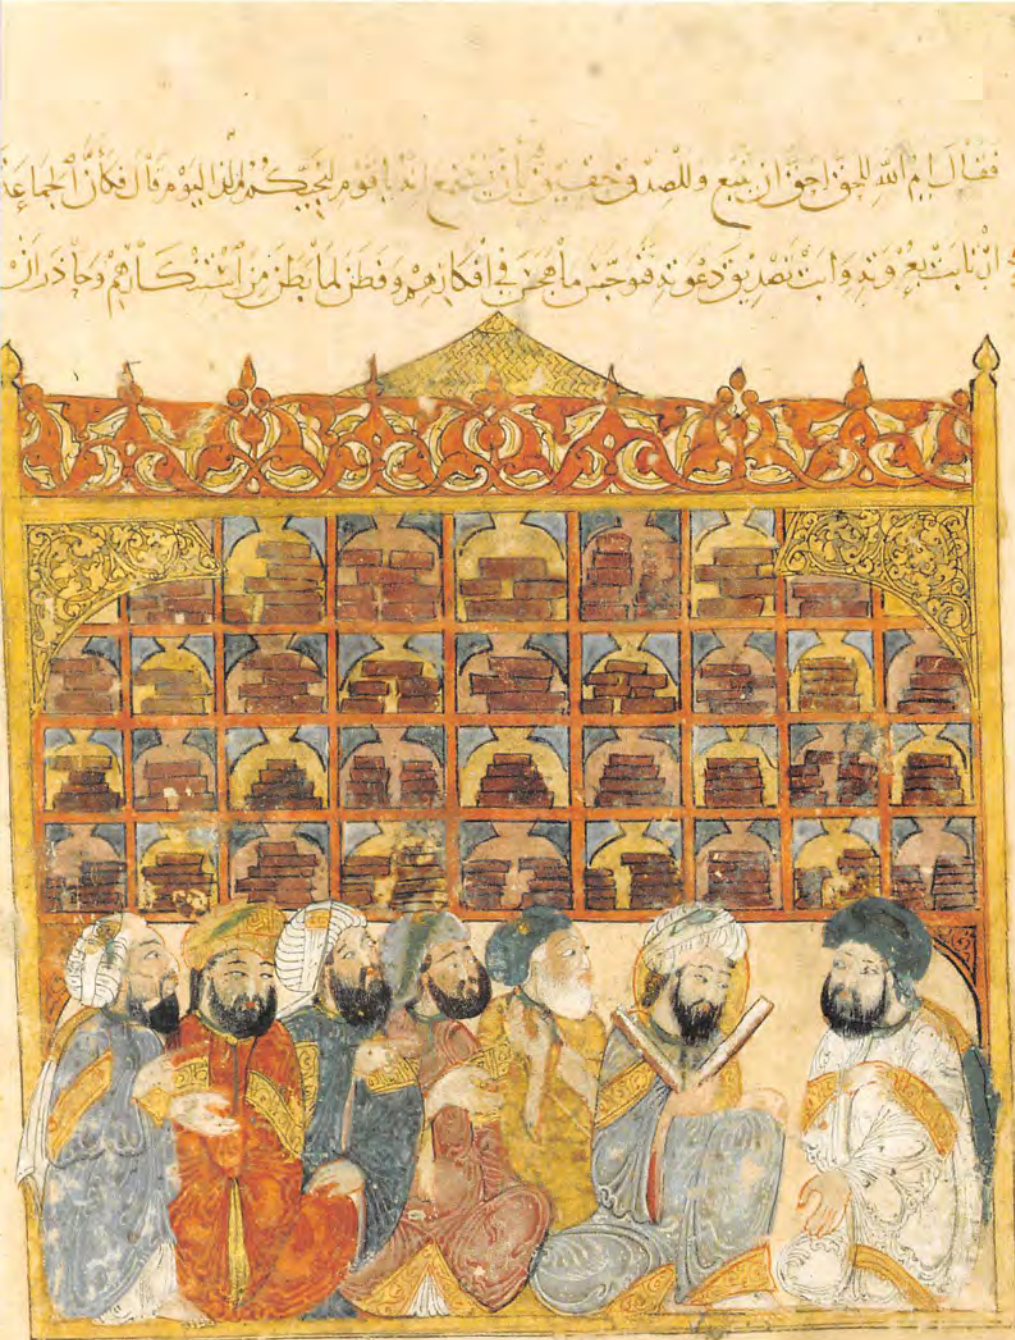 فقَالَ ايم الله للحق احق ان يتبع وللصدق حقيق بأن يستمع انه يا قوم لنجيكم مذ اليوم قال فكأن الجماعة
ارتابت بعزوته وابت تصديق دعوته فتوجس ما هجس في افكارهم وفطن لما بطن من استنكارهم وحاذر ان